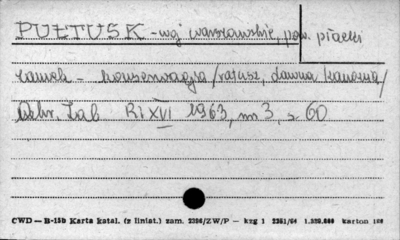 PUŁTUSK - wj warszawskie, pow.
zamek - konserwacja /ratusz, dawna kanonia/
Ochr. Zab. R: XVI 1963, nr 3, s. 60
CWD — B-15b Karta katal. (z liniat.) zam. 2396/ZW/P — kzg 1 2351/64 karton